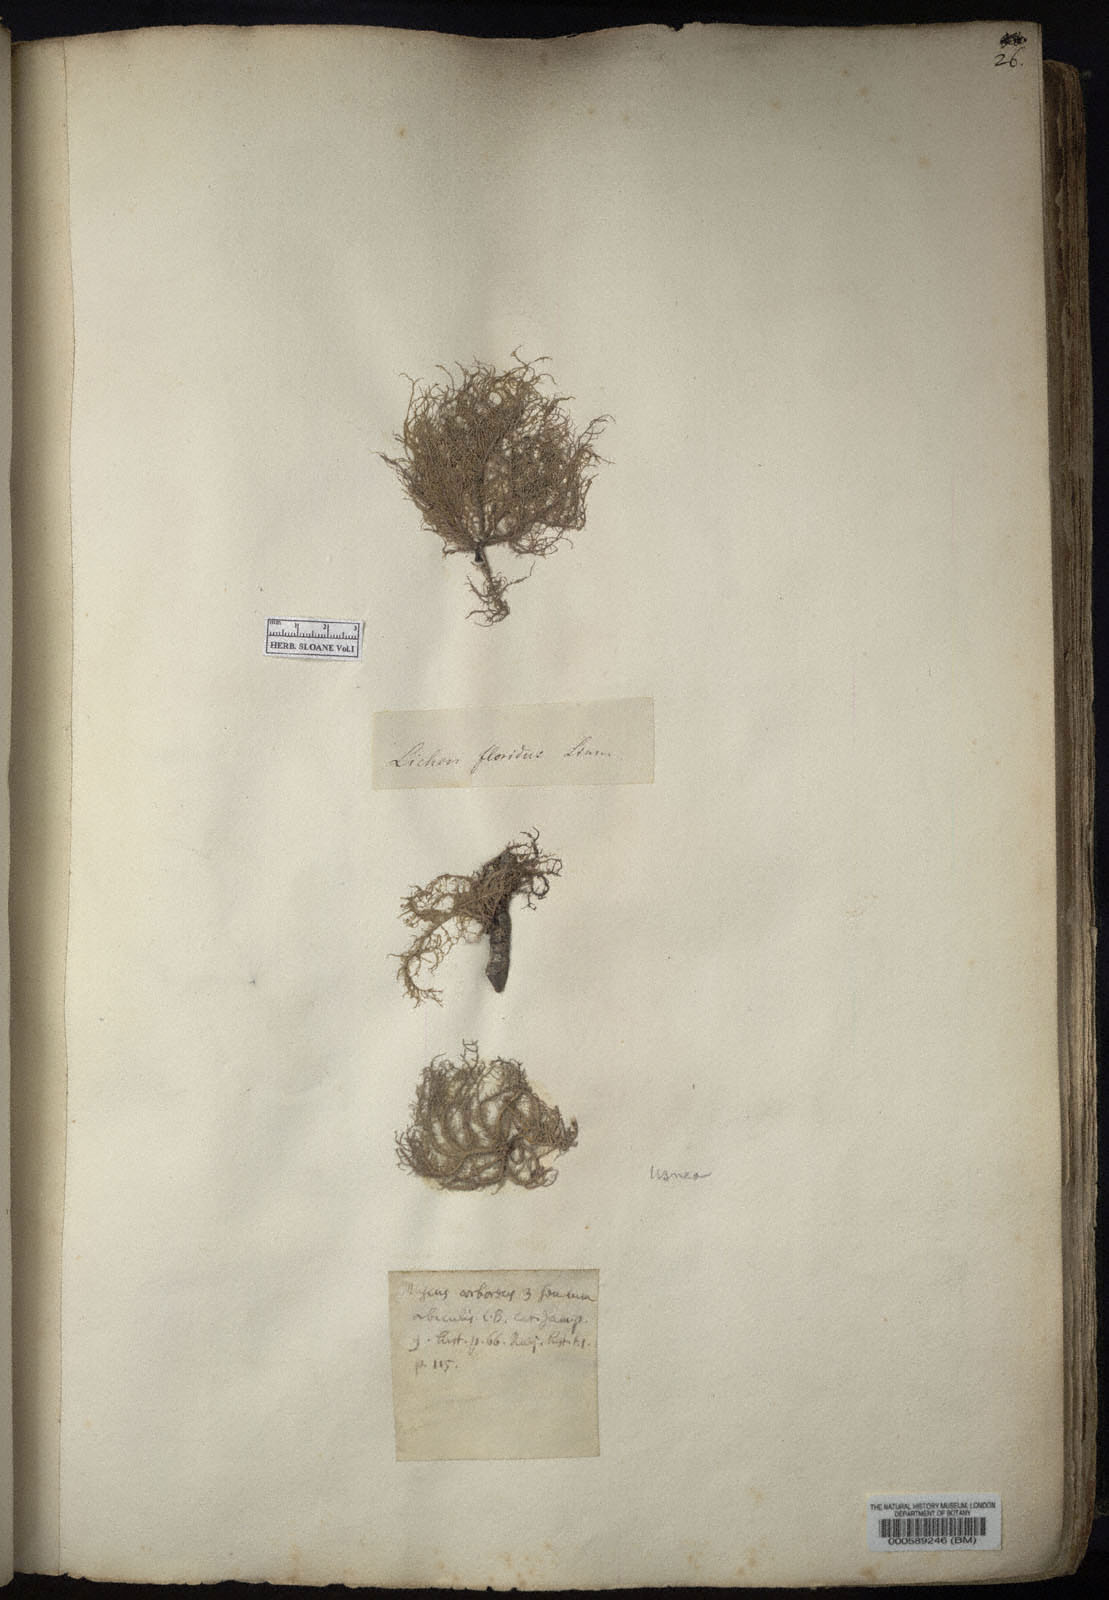 26.
mm 1 2 3
HERB. SLOANE Vol.1
Lichen floridus Linn.
Muscus arboreus 3 
orbiculis C.B. cat. Jam. p.
3. hist. p. 66. Raij. hist. t.1.
p. 115.
Usnea
THE NATURAL HISTORY MUSEUM, LONDON
DEPARTMENT OF BOTANY
000589246 (BM)